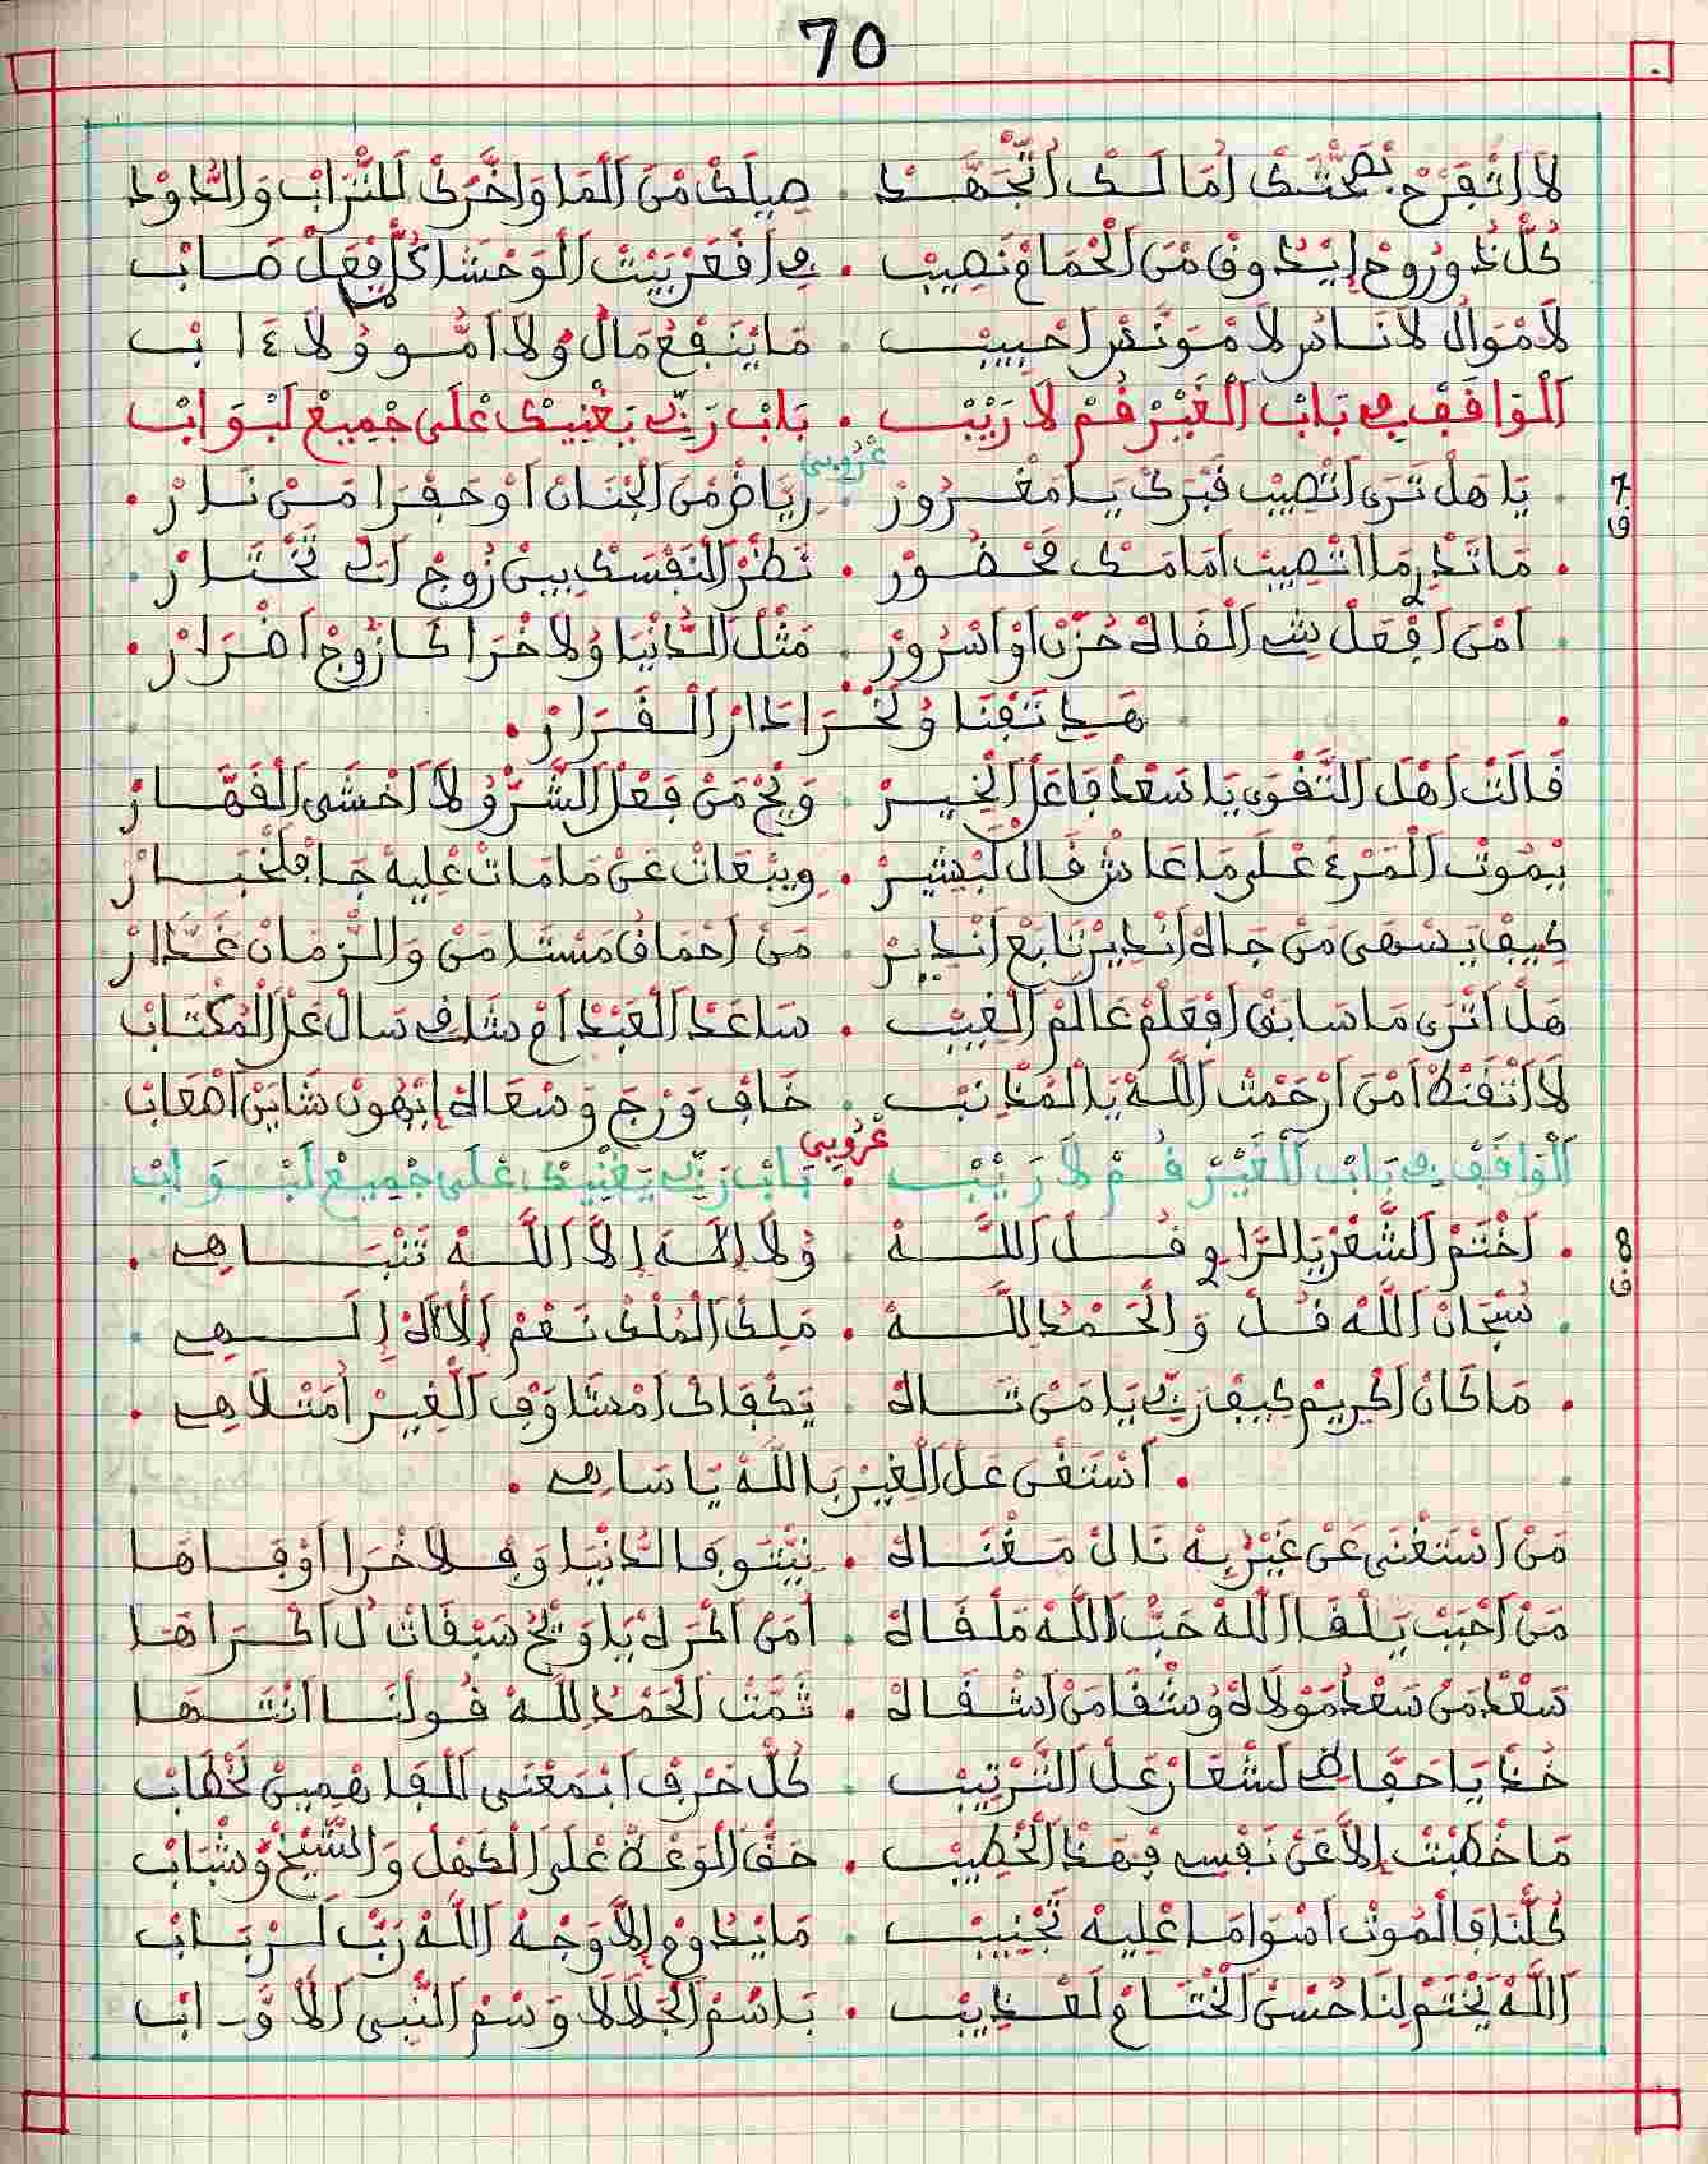 70
لَا اَتْفِرَحْ بْصَحْتَكْ اُمَا لَكْ اَتْجَهَّدْ . صِيلَكْ مْنَ اَلْمَا وَاخَّرَكْ لَلتْرَابْ وَالدُّودْ
كُلّْ ذُورُوحْ اِيْدُوقْ مْنَ اَلْحْمَامْ نَصِيبْ . فِي اَقْعَرْ بَيْتْ اَلْوَحْشَا كُلّْ فِعَلْ صَابْ
لَامْوَالْ لَانَاسْ لَامْوَنَسْ اَحْبِيبْ . مَايَنْفَعْ مَالْ وُلَا اَمُّو وُلَا ءَابْ
اَلْوَاقَفْ فِي بَابْ اَلْغَيْرْ قُمْ لَا رَيْبْ . بَابْ رَبِّي يَغْنِيكْ عْلَى جْمِيعْ لَبْوَابْ
عْرُوبِي
7 ف
. يَا هَلْ تَرَى اَتْصِيبْ قَبْرَكْ يَا مَغْرُورْ . رِيَاضْ مْنَ اَلْجْنَانْ اَوْ حَفْرَا مَنْ نَارْ .
. مَاتَدْرِ مَا اَتْصِيبْ اَمَامَكْ مَحْضُورْ . نَظْرْ اَلْنَفْسَكْ بِينْ زُوجْ اَلِّي تَخْتَارْ .
. اَمْنَ اَفْعَلْ شِي اَلْقَاهْ حُزْنْ اَوْ اَسْرُورْ . مَثْلْ اَلدُّنْيَا وُلَاخْرَا كَا زُوجْ اَضْرَارْ .
. هَدِي تَفْنَا وُلَخْرَا دَارْ اَلْقَرَارْ .
قَالَتْ اَهْلَ اَلتَّقْوَى يَا سَعْدْ فَاعَلْ اَلْخِيرْ . وَيْحْ مَنْ فِعْلْ اَلشَّرّْ وُ لَا اَخْشَى اَلْقَهَّارْ
يْمُوتْ اَلْمَرْءْ عْلَى مَا عَاشْ قَالْ لَبْشِيرْ . وِيبْعَاتْ عَنْ مَا مَاتْ عْلِيهْ جَا فْلَخْبَارْ
كِيفْ يَسْهَى مَنْ جَاهْ اَنْدِيرْ تَابَعْ اَنْدِيرْ . مَنْ اَحْمَاقْ مَسْتَامَنْ وَالزْمَانْ غَدَّارْ
هَلْ اَتْرَى مَا سَابَقْ اَفْعَلْمْ عَالَمْ اَلْغِيبْ . سَاعَدْ اَلْعَبْدْ اَمْ شَاقِي سَالْ عَلْ اَلْمَكْتَابْ
لَا اَتْقَنْطْ اَمْنَ اَرْحَمْتْ اَللَّهْ يَا اَلْمَذْنَبْ . خَافْ وَرْجَ وَسْعَاهْ اِيْهُونْ شَايَنْ اَصْعَابْ
اَلْوَاقَفْ فِي بَابْ اَلْغَيْرْ قُمْ لَا رَيْبْ . بَابْ رَبِّي يَغْنِيكْ عْلَى جْمِيعْ لَبْوَابْ
عْرُوبِي
8 ف
. اَخْتَمْ اَلشَّعْرْ يَا اَلرَّاوِي قُلْ اَللَّهْ . وُلَا اِلَهَ اِلَّا اَللَّهْ تَنْبَاهِي .
. سُبْحَانْ اَللَّهْ قُلْ وَالْحَمْدُ لِلَّهْ . مَلِكْ اَلْمُلْكْ نَعْمْ اَلْاِلَاهْ اِلَهِي .
. مَا كَانْ اَكْرِيمْ كِيفْ رَبِّي يَا مَنْ تَاهْ . يَكْفَاكْ اَمْشَا وَفِ اَلْغِيرْ اَمْتْلَاهِي .
. اَسْتَغْنَى عَلْ اَلْغِيرْ بَاللَّهْ يَا سَاهِي .
مَنْ اَسْتَغْنَى عَنْ غَيْرْ بِهْ نَالْ مَغْنَاهْ . نِيّْتُو فَالدُّنْيَا وَفِلَاخْرَا اَوْفَاهَا
مَنْ اَحْبَبْ يَلْقَا اَللَّهْ حَبّْ اَللَّهْ مَلْقَاهْ . اَمَنْ اَكْرَهْ يَا وَيْحْ سَبْقَاتْ لْ اَكْرَاهَا
سَعْدْ مَنْ سَعْدْ مَوْلَاهْ وُشْقَا مَنْ اَشْقَاهْ . تَمَّتْ اَلْحَمْدُ لِلَّهْ قُولْنَا اَنْتَهَا
خُذْ يَا حَفَّاظِي لَشْعَارْ عَلْ اَلتَّرْتِيبْ . كُلّْ حَرْفْ اَبْمَعْنَى اَلْفَاهْمِينْ لَخْطَابْ
مَا خْطَبْتْ اِلَّا عَنْ نَفْسِي فِهَذْ اَلْخْطِيبْ . حَقّْ اَلْوَعْدْ عْلَى اَلْكَهْلْ وَالشِّيخْ وُشْبَابْ
كُلّْنَا فَالْمُوتْ اَسْوَا مَا عْلِيهْ تَجْنِيبْ . مَا يْدُومْ اِلَّا وَجْهْ اَللَّهْ رَبّْ لَرْبَابْ
اَللَّهْ يَخْتَمْ لْنَا حُسْنَ اَلْخْتَامْ لَعْذِيبْ . بَاسْمْ اَلْجَلَالَا وَسْمْ اَلنَّبِي اَلْاَوَّابْ